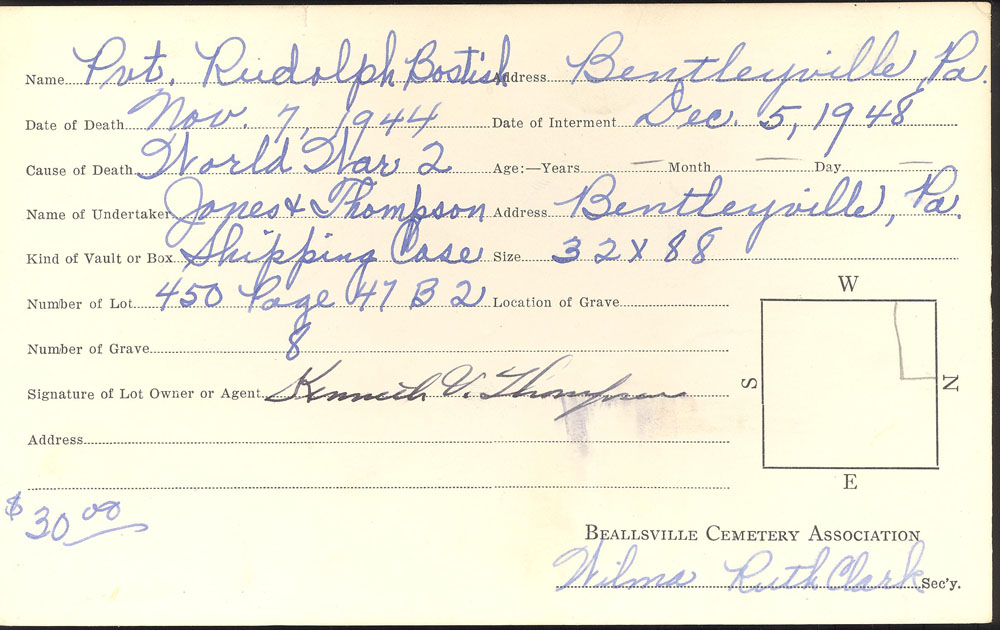 Name Pvt. Rudolph Bostish Address Bentleyville, Pa.
Date of Death Nov. 7, 1944 Date of Interment Dec. 5, 1948
Cause of Death World War 2 Age:—Years — Month — Day —
Name of Undertaker Jones & Thompson Address Bentleyville, Pa.
Kind of Vault or Box Shipping Case Size 32 X 88
Number of Lot 450 Page 47 B 2 Location of Grave
W
Number of Grave 8
Signature of Lot Owner or Agent Kenneth V. Thompson
S N
Address
E
$30.00
BEALLSVILLE CEMETERY ASSOCIATION
Wilma Ruth Clark Sec'y.